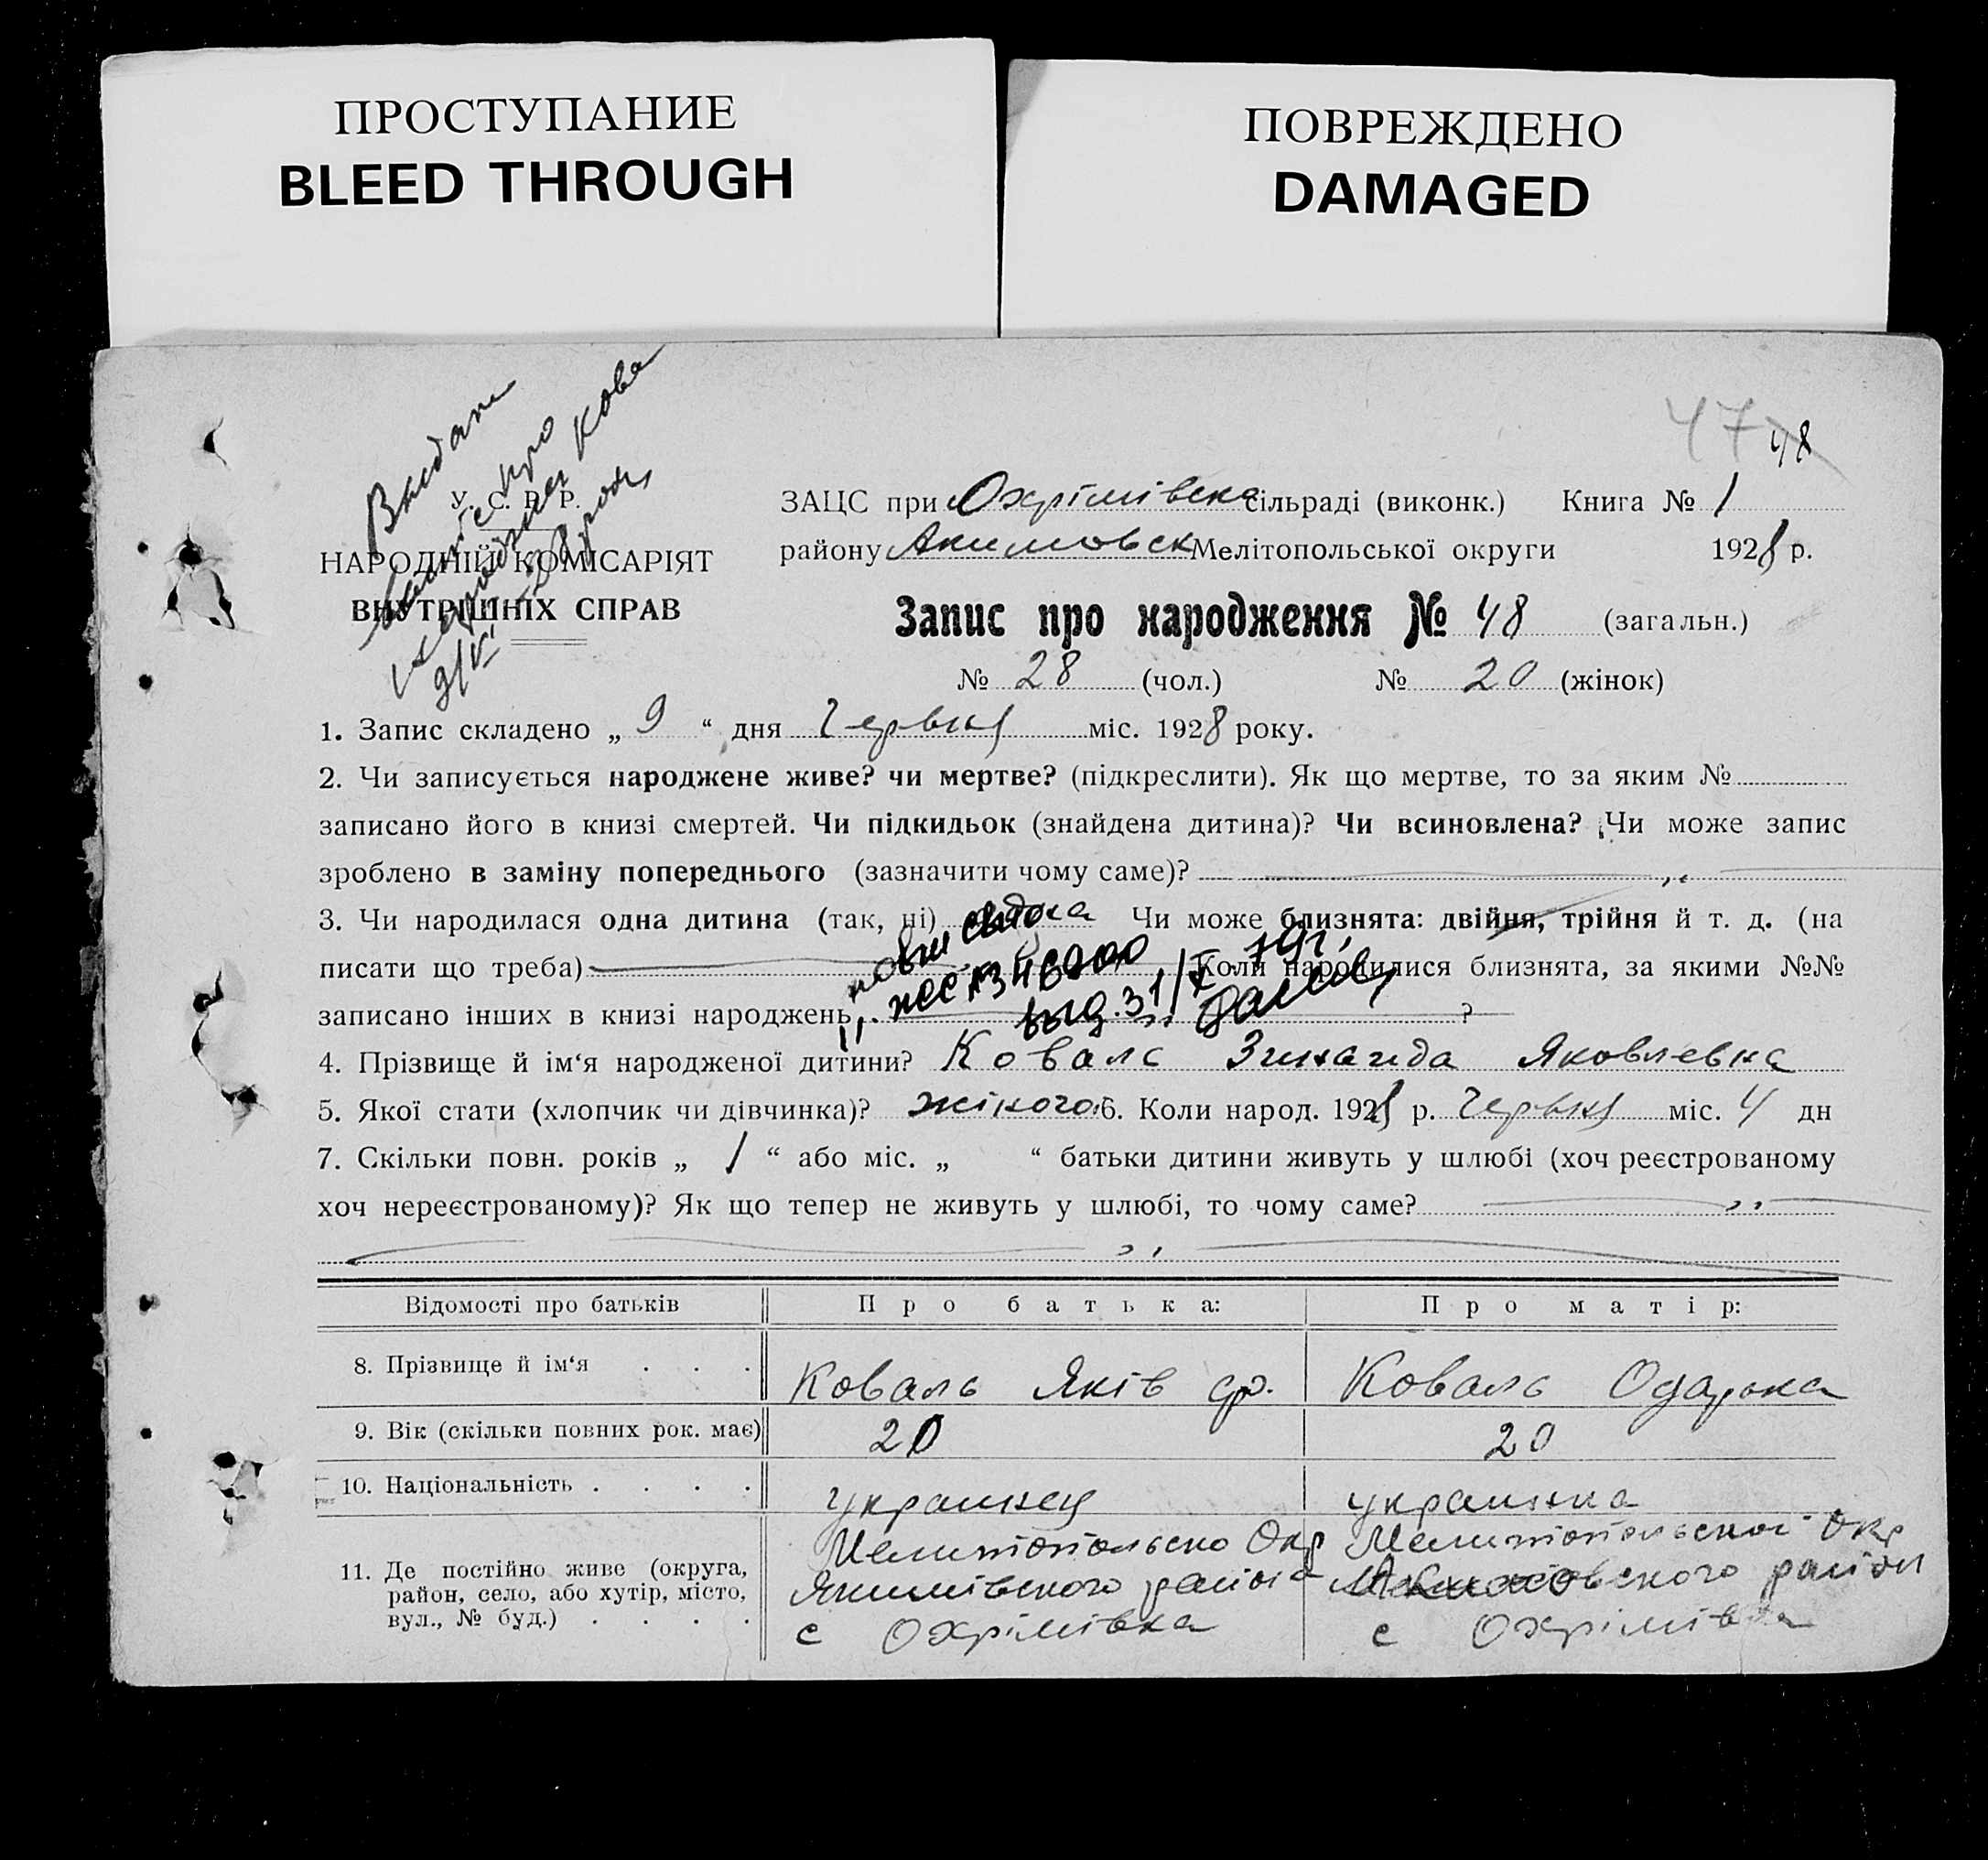 ПРОСТУПАНИЕ
BLEED THROUGH
ПОВРЕЖДЕНО
DAMAGED
47 48
Видан
про
Кова
У. С. Р. Р.
НАРОДНІЙ КОМІСАРІЯТ
ВНУТРІШНІХ СПРАВ
9/VI
ЗАЦС при Охрімівска сільраді (виконк.) Книга № 1
району Акимовск Мелітопольської округи 1928 р.
Запис про народження № 48 (загальн.)
№ 28 (чол.) № 20 (жінок)
1. Запис складено „ 9 “ дня Червня міс. 1928 року.
2. Чи записується народжене живе? чи мертве? (підкреслити). Як що мертве, то за яким №
записано його в книзі смертей. Чи підкидьок (знайдена дитина)? Чи всиновлена? Чи може запис
зроблено в заміну попереднього (зазначити чому саме)?
3. Чи народилася одна дитина (так, ні) Чи може близнята: двійня, трійня й т. д. (на
писати що треба) Коли народилися близнята, за якими №№
записано інших в книзі народжень ?
4. Прізвище й ім‘я народженої дитини? Коваль Зинаида Яковлевна
5. Якої стати (хлопчик чи дівчинка)? жіного 6. Коли народ. 1928 р. Червня міс. 4 дн
7. Скільки повн. років „ 1 “ або міс. „ “ батьки дитини живуть у шлюбі (хоч реєстрованому
хоч нереєстрованому)? Як що тепер не живуть у шлюбі, то чому саме?
Відомості про батьків Про батька: Про матір:
8. Прізвище й ім‘я . . . Коваль Яків ф. Коваль Одарка
9. Вік (скільки повних рок. має) 20 20
10. Національність . . . . украинец украинка
11. Де постійно живе (округа, район, село, або хутір, місто, вул., № буд.) . . . .
Мелитопольско Окр
Якимівского района
с Охрімівка
Мелитопольскоі Окр
Акимовского район
с Охрімівка